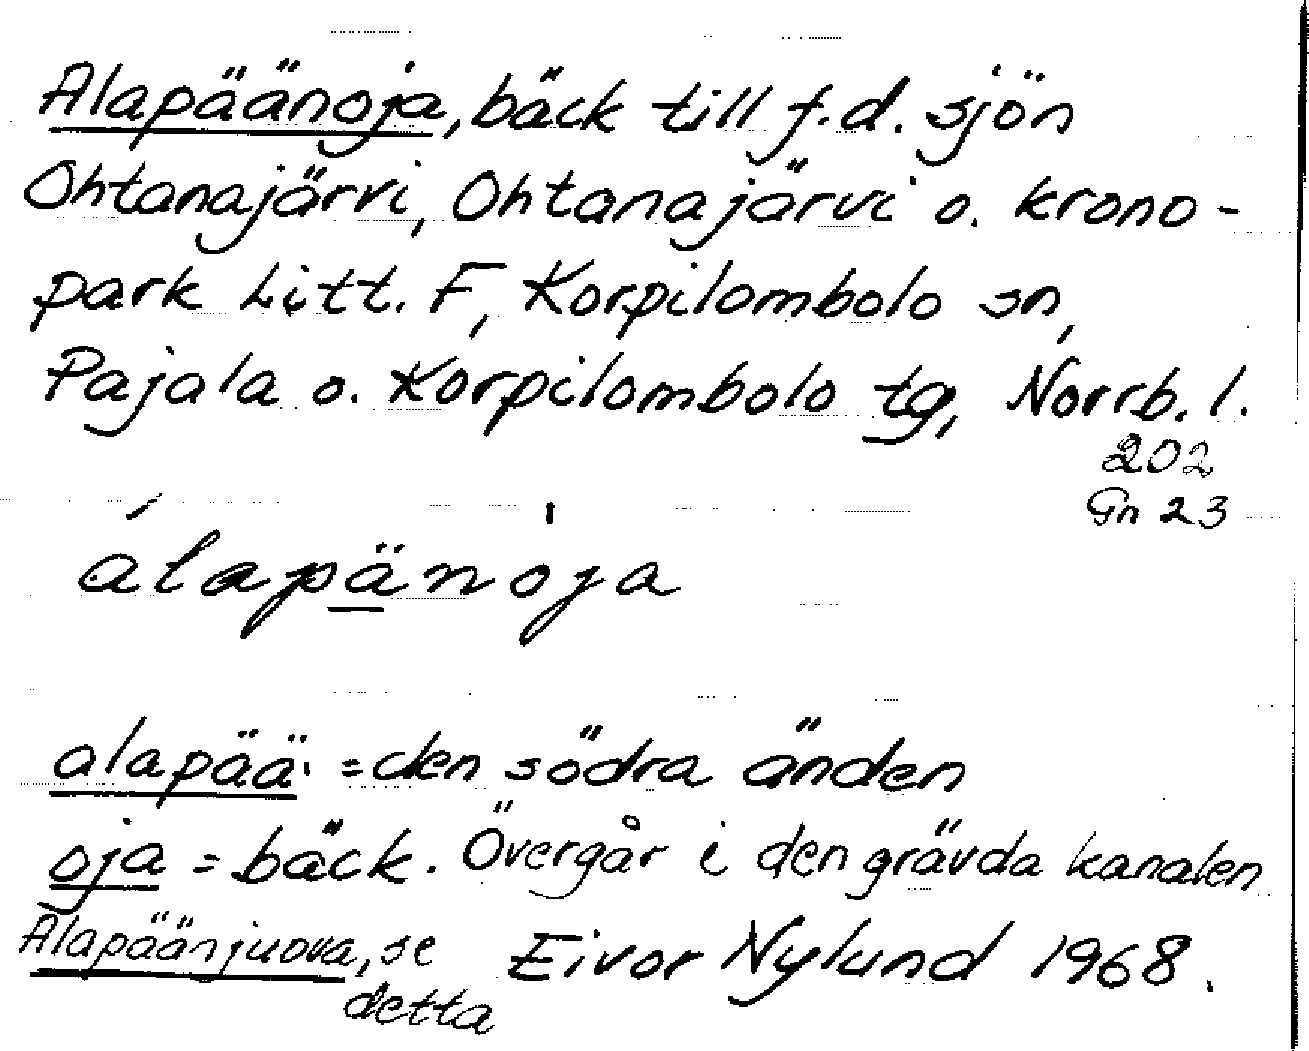 Alapäänoja, bäck till f.d. sjön
Ohtanajärvi, Ohtanajärvi o. krono-
park Litt. F, Korpilombolo sn,
Pajala o. Korpilombolo tg, Norrb. l.
202
Gn 23
álapänòja
alapää = den södra änden
oja = bäck. Övergår i den grävda kanalen
Alapäänjuova, se
detta
Eivor Nylund 1968.